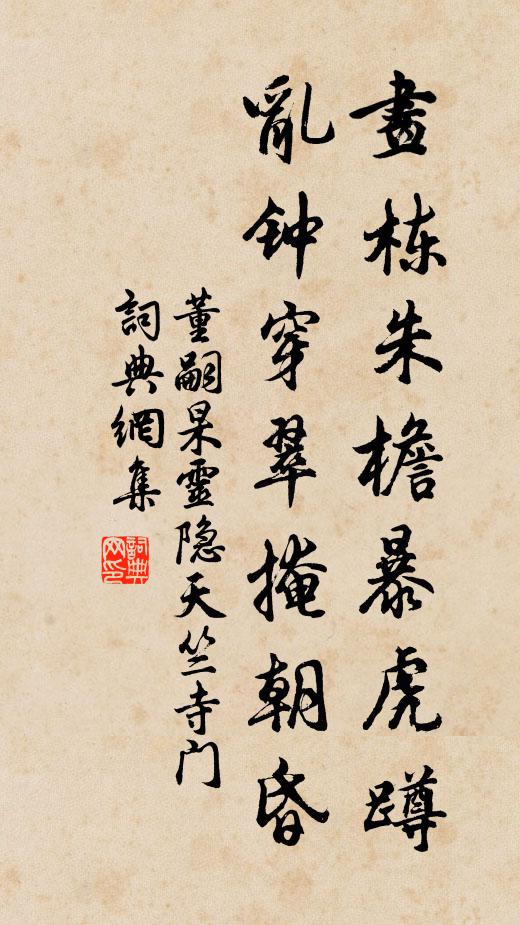 畫栋朱檐暴虎蹲
亂钟穿翠掩朝昏
董嗣杲靈隐天竺寺门
詞典網集
詞典网印